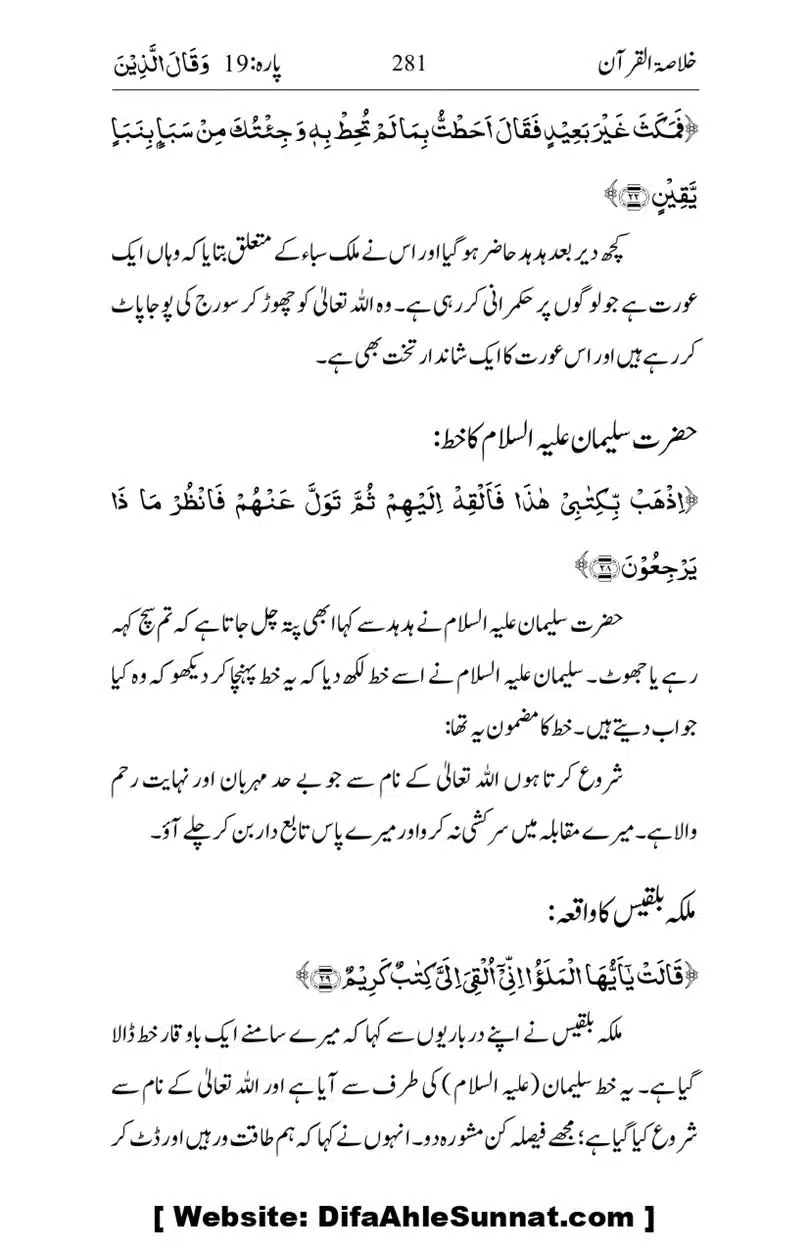 خلاصۃ القرآن 281 پارہ:19 وَقَالَ الَّذِیْنَ
﴿فَمَكَثَ غَیْرَ بَعِیْدٍ فَقَالَ اَحَطْتُّ بِمَا لَمْ تُحِطْ بِهٖ وَ جِئْتُكَ مِنْ سَبَاٍۭ بِنَبَاٍ
یَّقِیْنٍ ﴿۲۲﴾﴾
کچھ دیر بعد ہدہد حاضر ہو گیا اور اس نے ملک سباء کے متعلق بتایا کہ وہاں ایک
عورت ہے جو لوگوں پر حکمرانی کر رہی ہے۔ وہ اللہ تعالیٰ کو چھوڑ کر سورج کی پوجا پاٹ
کر رہے ہیں اور اس عورت کا ایک شاندار تخت بھی ہے۔
حضرت سلیمان علیہ السلام کا خط:
﴿اِذْهَبْ بِّكِتٰبِیْ هٰذَا فَاَلْقِهْ اِلَیْهِمْ ثُمَّ تَوَلَّ عَنْهُمْ فَانْظُرْ مَا ذَا
یَرْجِعُوْنَ ﴿۲۸﴾﴾
حضرت سلیمان علیہ السلام نے ہدہد سے کہا ابھی پتہ چل جاتا ہے کہ تم سچ کہہ
رہے یا جھوٹ۔ سلیمان علیہ السلام نے اسے خط لکھ دیا کہ یہ خط پہنچا کر دیکھو کہ وہ کیا
جواب دیتے ہیں۔ خط کا مضمون یہ تھا:
شروع کرتا ہوں اللہ تعالیٰ کے نام سے جو بے حد مہربان اور نہایت رحم
والا ہے۔ میرے مقابلہ میں سرکشی نہ کرو اور میرے پاس تابع دار بن کر چلے آؤ۔
ملکہ بلقیس کا واقعہ:
﴿قَالَتْ یٰۤاَیُّهَا الْمَلَؤُا اِنِّیْۤ اُلْقِیَ اِلَیَّ كِتٰبٌ كَرِیْمٌ ﴿۲۹﴾﴾
ملکہ بلقیس نے اپنے درباریوں سے کہا کہ میرے سامنے ایک باوقار خط ڈالا
گیا ہے۔ یہ خط سلیمان (علیہ السلام) کی طرف سے آیا ہے اور اللہ تعالیٰ کے نام سے
شروع کیا گیا ہے؛ مجھے فیصلہ کن مشورہ دو۔ انہوں نے کہا کہ ہم طاقت ور ہیں اور ڈٹ کر
[ Website: DifaAhleSunnat.com ]